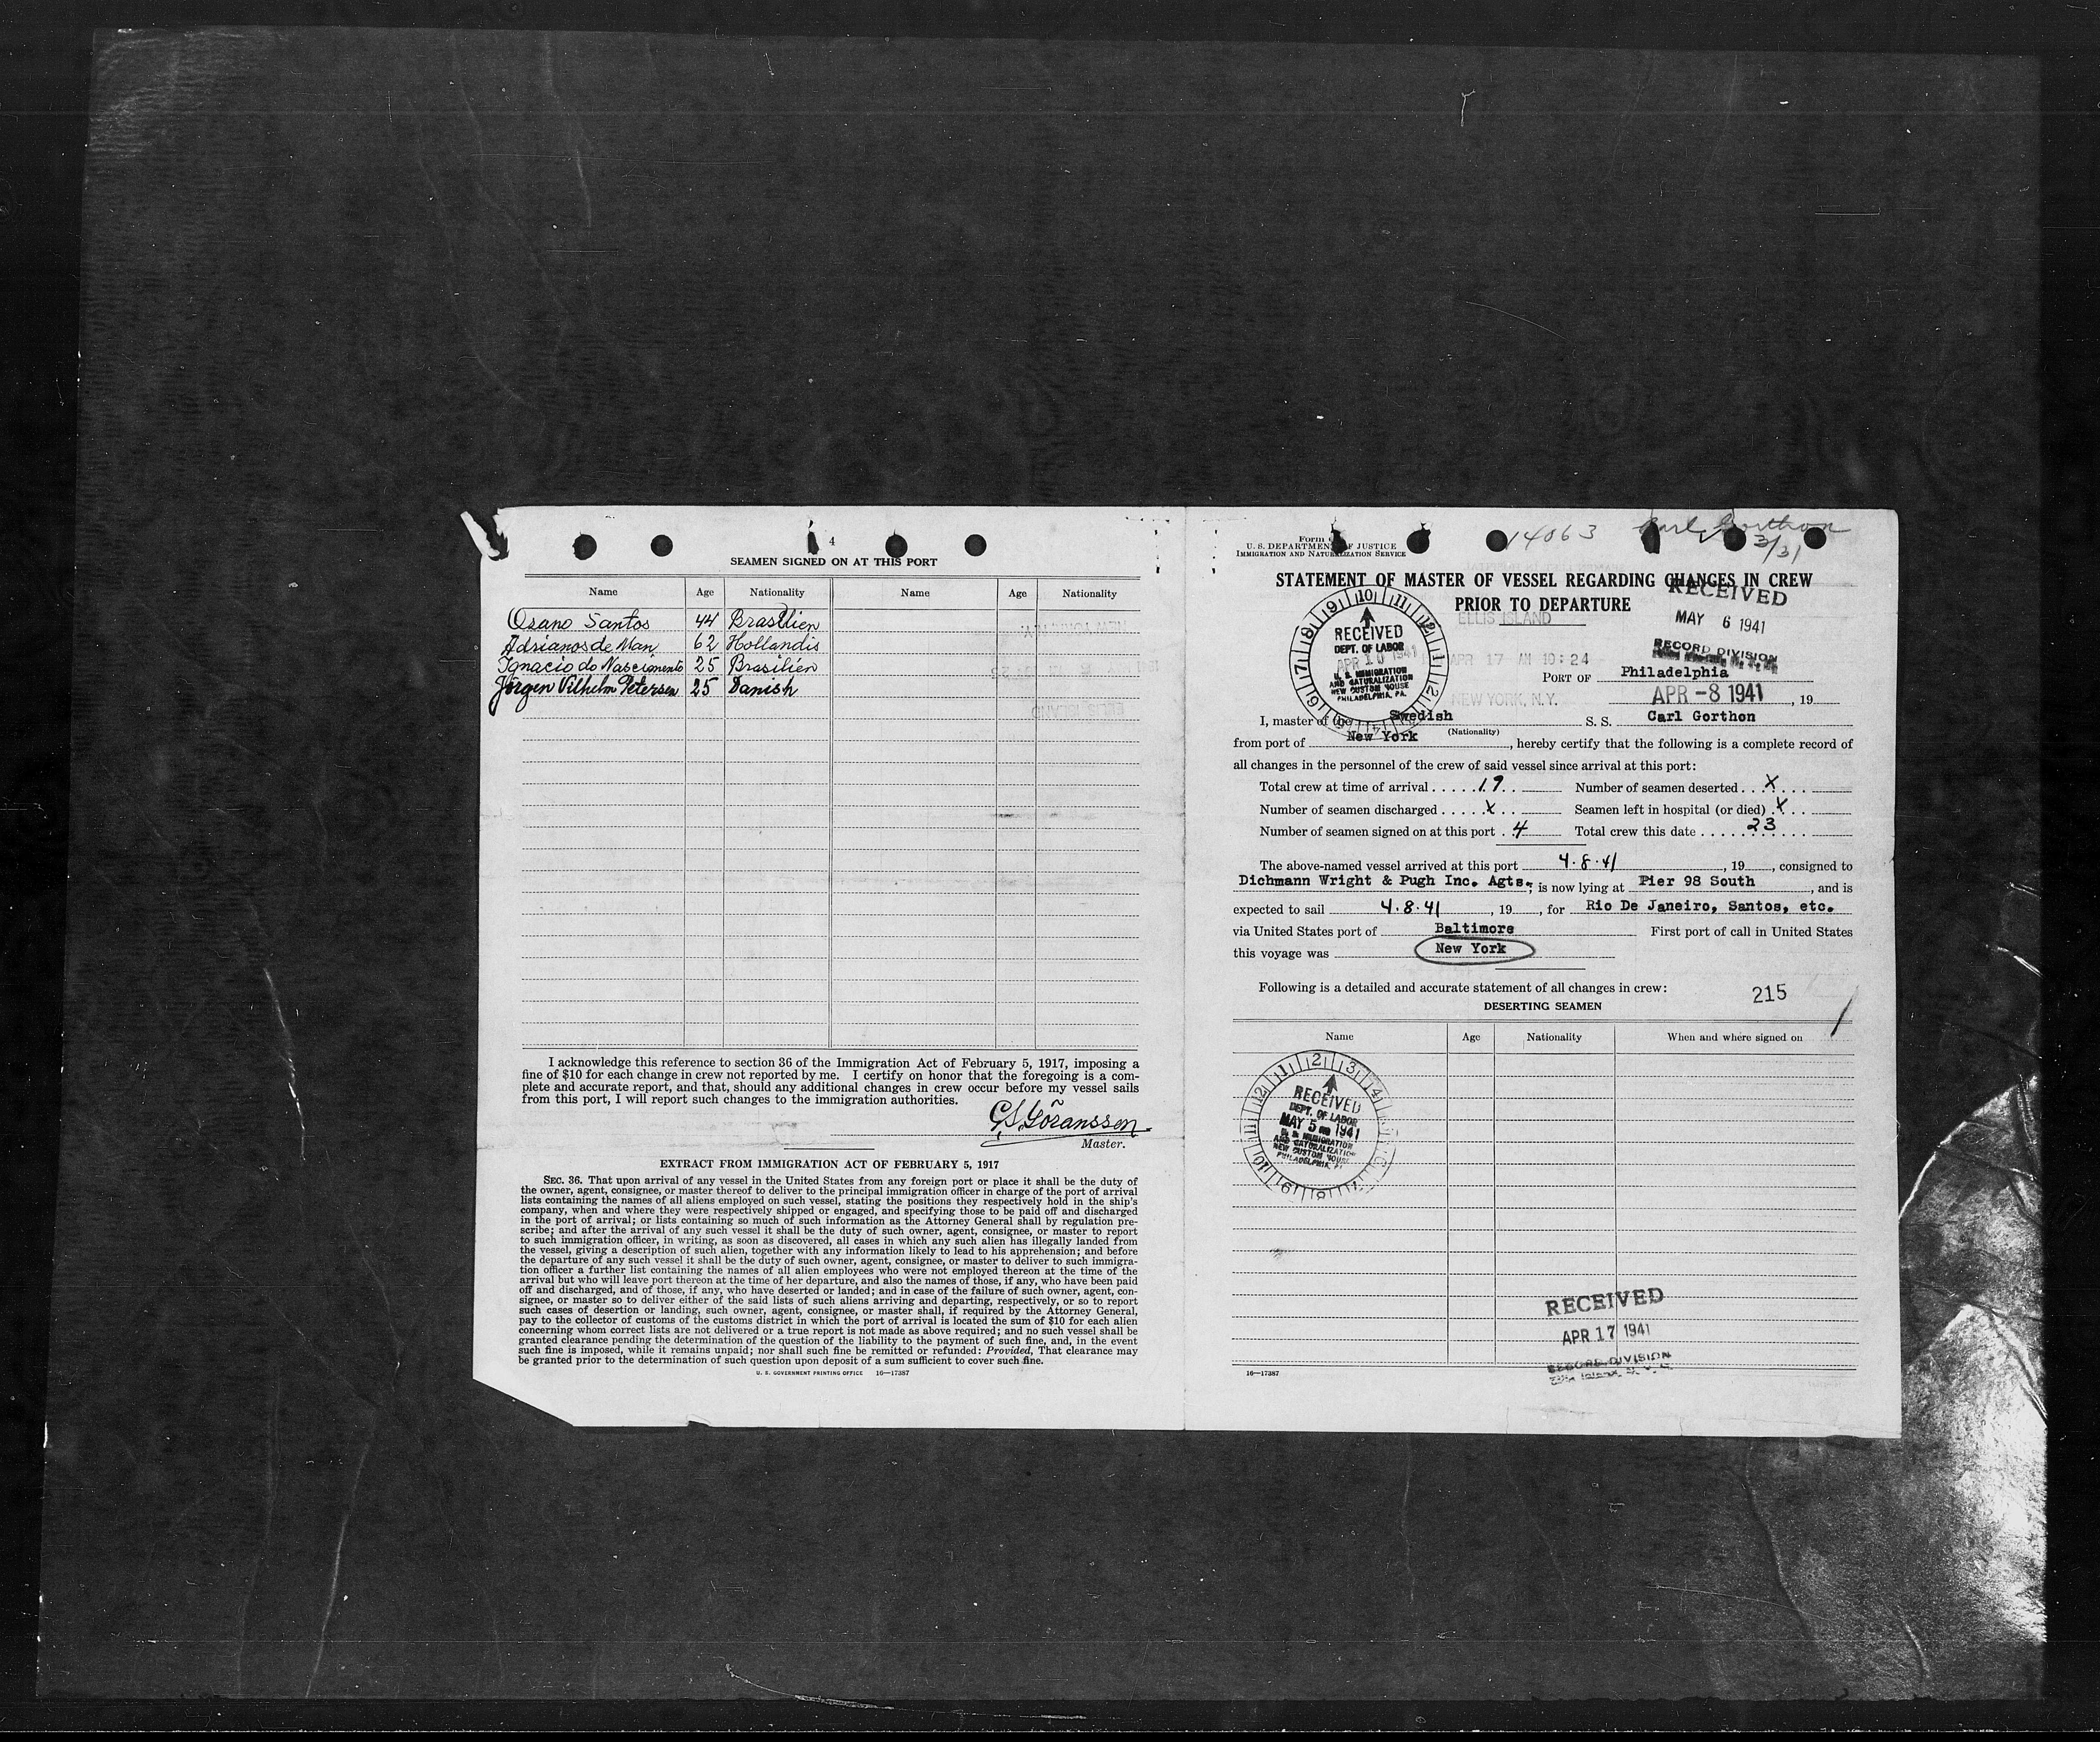 4
SEAMEN SIGNED ON AT THIS PORT
Name Age Nationality Name Age Nationality
Ozano Santos 44 Brasilien
Adrianos de Man 62 Hollandis
Ignacio do Nascimento 25 Brasilien
Jörgen Vilhelm Petersen 25 Danish
I acknowledge this reference to section 36 of the Immigration Act of February 5, 1917, imposing a
fine of $10 for each change in crew not reported by me. I certify on honor that the foregoing is a com-
plete and accurate report, and that, should any additional changes in crew occur before my vessel sails
from this port, I will report such changes to the immigration authorities.
Göranssen
Master.
EXTRACT FROM IMMIGRATION ACT OF FEBRUARY 5, 1917
SEC. 36. That upon arrival of any vessel in the United States from any foreign port or place it shall be the duty of
the owner, agent, consignee, or master thereof to deliver to the principal immigration officer in charge of the port of arrival
lists containing the names of all aliens employed on such vessel, stating the positions they respectively hold in the ship's
company, when and where they were respectively shipped or engaged, and specifying those to be paid off and discharged
in the port of arrival; or lists containing so much of such information as the Attorney General shall by regulation pre-
scribe; and after the arrival of any such vessel it shall be the duty of such owner, agent, consignee, or master to report
to such immigration officer, in writing, as soon as discovered, all cases in which any such alien has illegally landed from
the vessel, giving a description of such alien, together with any information likely to lead to his apprehension; and before
the departure of any such vessel it shall be the duty of such owner, agent, consignee, or master to deliver to such immigra-
tion officer a further list containing the names of all alien employees who were not employed thereon at the time of the
arrival but who will leave port thereon at the time of her departure, and also the names of those, if any, who have been paid
off and discharged, and of those, if any, who have deserted or landed; and in case of the failure of such owner, agent, con-
signee, or master so to deliver either of the said lists of such aliens arriving and departing, respectively, or so to report
such cases of desertion or landing, such owner, agent, consignee, or master shall, if required by the Attorney General,
pay to the collector of customs of the customs district in which the port of arrival is located the sum of $10 for each alien
concerning whom correct lists are not delivered or a true report is not made as above required; and no such vessel shall be
granted clearance pending the determination of the question of the liability to the payment of such fine, and, in the event
such fine is imposed, while it remains unpaid; nor shall such fine be remitted or refunded: Provided, That clearance may
be granted prior to the determination of such question upon deposit of a sum sufficient to cover such fine.
U. S. GOVERNMENT PRINTING OFFICE 16—17387
Form
U. S. DEPARTMENT OF JUSTICE
IMMIGRATION AND NATURALIZATION SERVICE
14063 Carl Gorthon
3/31
STATEMENT OF MASTER OF VESSEL REGARDING CHANGES IN CREW
PRIOR TO DEPARTURE
RECEIVED
MAY 6 1941
RECORD DIVISION
ELLIS ISLAND
APR 17 AM 10:24
NEW YORK, N.Y.
RECEIVED
DEPT. OF LABOR
APR 10 1941
U. S. IMMIGRATION
AND NATURALIZATION
NEW CUSTOM HOUSE
PHILADELPHIA, PA.
PORT OF Philadelphia
APR -8 1941, 19
I, master of the Swedish S. S. Carl Gorthon
(Nationality)
from port of New York, hereby certify that the following is a complete record of
all changes in the personnel of the crew of said vessel since arrival at this port:
Total crew at time of arrival 19 Number of seamen deserted X
Number of seamen discharged X Seamen left in hospital (or died) X
Number of seamen signed on at this port 4 Total crew this date 23
The above-named vessel arrived at this port 4.8.41, 19, consigned to
Dichmann Wright & Pugh Inc. Agts., is now lying at Pier 98 South, and is
expected to sail 4.8.41, 19, for Rio De Janeiro, Santos, etc.
via United States port of Baltimore First port of call in United States
this voyage was New York
Following is a detailed and accurate statement of all changes in crew:
215
DESERTING SEAMEN
Name Age Nationality When and where signed on
RECEIVED
DEPT. OF LABOR
MAY 5 1941
U. S. IMMIGRATION
AND NATURALIZATION
NEW CUSTOM HOUSE
PHILADELPHIA, PA.
RECEIVED
APR 17 1941
RECORD DIVISION
16—17387